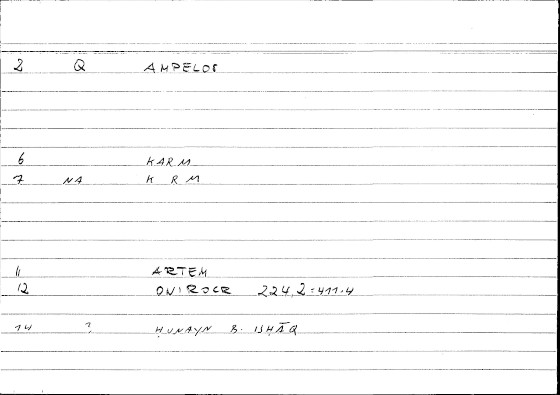 2 Q AMPELOS
6 KARM
7 NA K R M
11 ARTEM
12 ONIROCR 224,2=411.4
14 ? ḤUNAYN B. ISḤĀQ